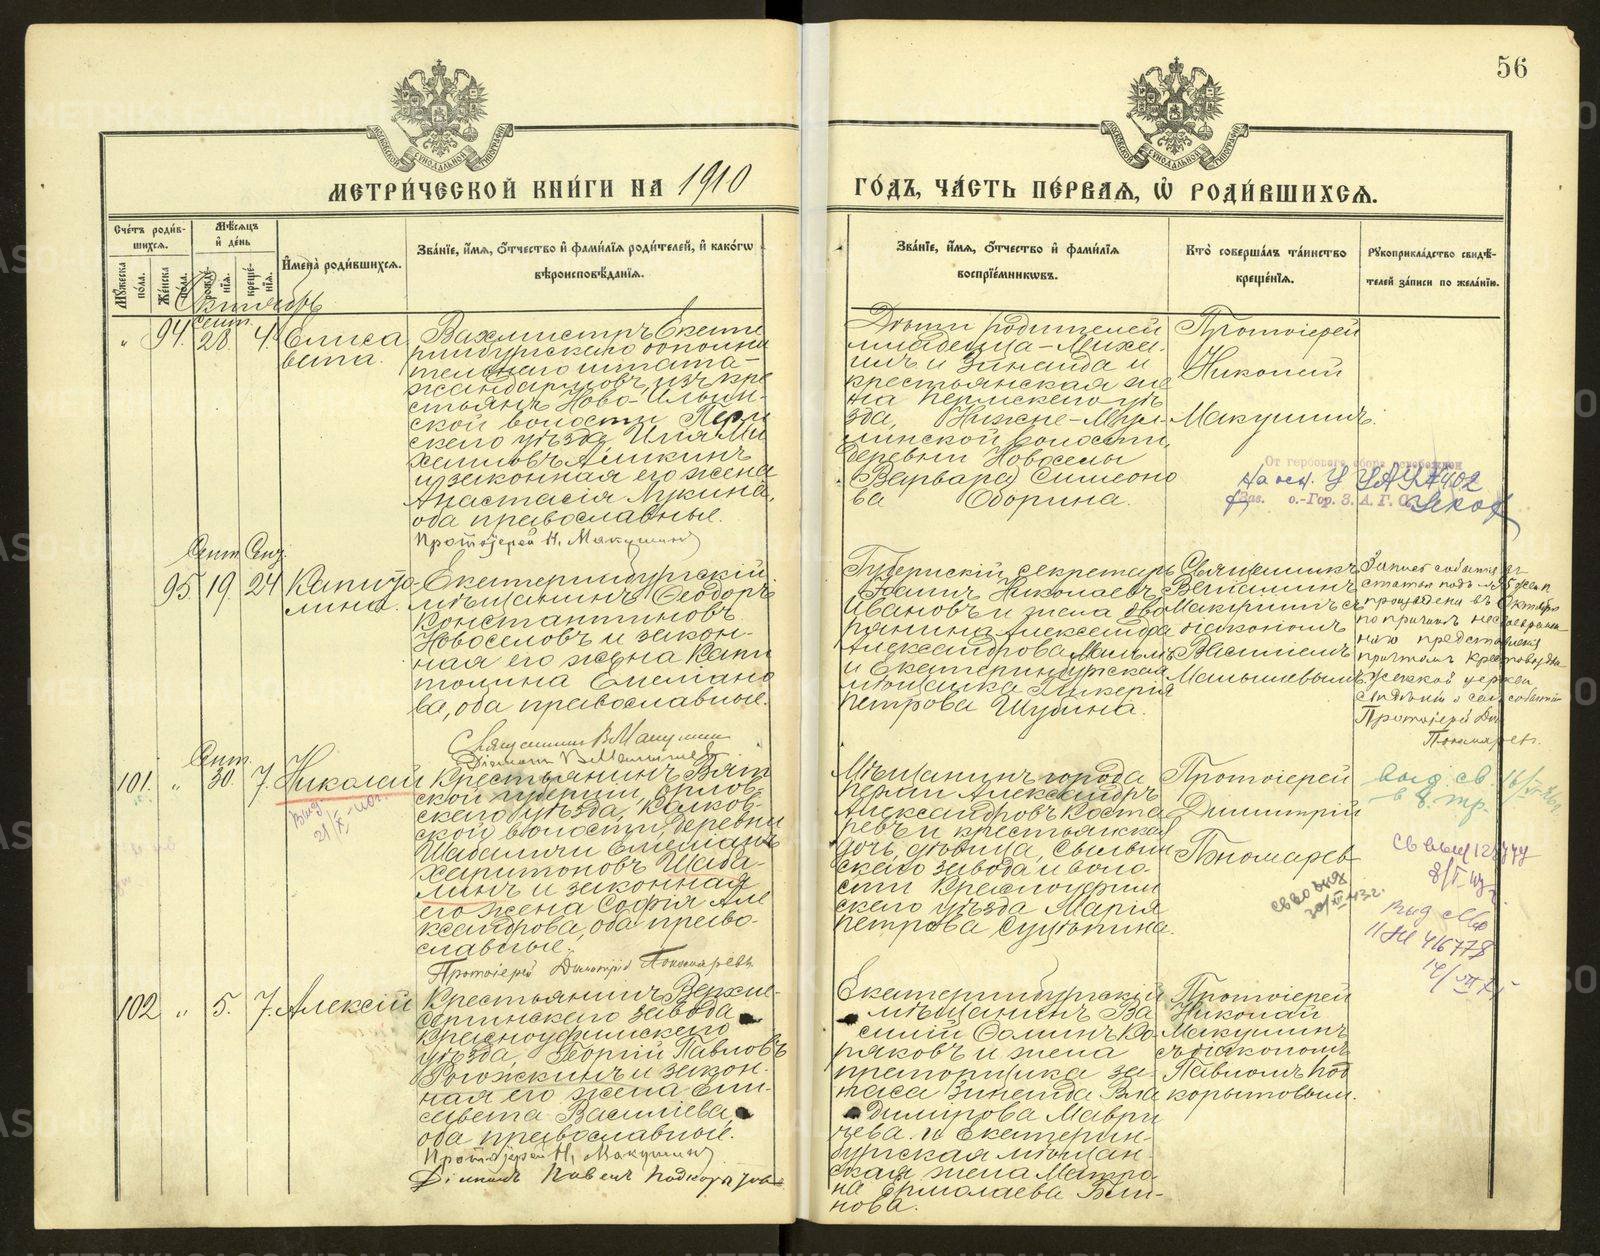 56
МЕТРИ́ЧЕСКОЙ КНИ́ГИ НА 1910
ГО́ДЪ, ЧА́СТЬ ПЕ́РВАЯ, Ѡ҆ РОДИ́ВШИХСѦ.
Сче́тъ роди́в-
шихся.
Мѣ́сяцъ
и҆ де́нь
Мꙋ́жеска
по́ла.
Же́нска
по́ла.
рожде́-
нїѧ.
креще́-
нїѧ.
И҆мена̀ роди́вшихся.
Зва́нїе, и҆́мѧ, ѻ҆́тчество и҆ фами́лїѧ роди́телей, и҆ како́гѡ
вѣроисповѣ́данїѧ.
Зва́нїе, и҆́мѧ, ѻ҆́тчество и҆ фами́лїѧ
воспрїе́мникѡвъ.
Кто̀ соверша́лъ та́инство
креще́нїѧ.
Рꙋкоприкла́дство свидѣ́-
телей за́писи по жела́нїю.
Октябрь
Сент.
" 94. 28. 4. Елиса
вета.
Вахмистръ Екате
ринбургскаго дополни
тельнаго штата
жандармовъ, изъ кре
стьянъ Ново-Ильин-
ской волости Перм
скаго уѣзда Илія Ми
хаиловъ Аликинъ
и законная его жена
Анастасія Лукина,
оба православные.
Протоіерей Н. Макушинъ
Дѣти родителей
младенца - Миха-
илъ и Зинаида и
крестьянская же
на Пермскаго уѣ
зда, Нижне-Мул-
линской волости,
деревни Новоселы
Варвара Симеоно
ва Оборина.
Протоіерей
Николай
Макушинъ.
От гербового сбора освобожден
Зав. о.-Гор. З.А.Г.С.
Сент. Сент.
95 19 24 Капито-
лина.
Екатеринбургскій
мѣщанинъ Ѳеодоръ
Константиновъ
Новоселовъ и закон-
ная его жена Капи
толина Емеліано
ва, оба православные.
Священникъ В Макушинъ
Діаконъ В. Малышевъ
Губернскій секретарь
Николаевъ
Ивановъ и жена дво
рянина Александра
Александрова
и Екатеринбургская
мѣщанка Гликерія
Петрова Шубина.
Священникъ
Веніаминъ
Макушинъ съ
діакономъ
Василіемъ
Малышевымъ
Запись событія сего
статья подъ № 95 жен.п
пропущена въ Октябрѣ
по причинѣ несвоевремен-
наго представленія
причтомъ Крестовоздви
женской церкви
свѣдѣній о семъ событіи
Протоіерей Дим.
Пономаревъ.
Сент.
101. " 30. 7. Николай
Выд
21/X-
Крестьянинъ Вят
ской губерніи, Орлов-
скаго уѣзда, Колков-
ской волости, деревни
Шабаличи Емеліанъ
Харитоновъ Шаба-
линъ и законная
его жена Софія Але
ксандрова, оба право-
славные.
Протоіерей Димитрій Пономаревъ
Мѣщанинъ города
Перми Александръ
Александровъ Коста
ревъ и крестьянская
дочь, дѣвица, Сылвин
скаго завода и воло-
сти Красноуфим
скаго уѣзда Марія
Петрова Сущопина.
Протоіерей
Димитрій
Пономарев
102 " 5. 7. Алексій
Крестьянинъ Верхне-
Сергинскаго завода
Красноуфимскаго
уѣзда, Георгій Павловъ
Рогожкинъ и закон-
ная его жена Ели-
савета Василіева
оба православные.
Протоіерей Н. Макушинъ
Діаконъ Павелъ Подкорытовъ
Екатеринбургскій
мѣщанинъ Ва
силій Ѳоминъ Ко-
ряковъ и жена
прапорщика за-
паса Зинаида Вла
димирова Маври
чева. и Екатерин-
бургская мѣщан-
ская жена Матро-
на Ермолаева Бли-
нова.
Протоіерей
Николай
Макушинъ
съ діакономъ
Павломъ Под
корытовым.